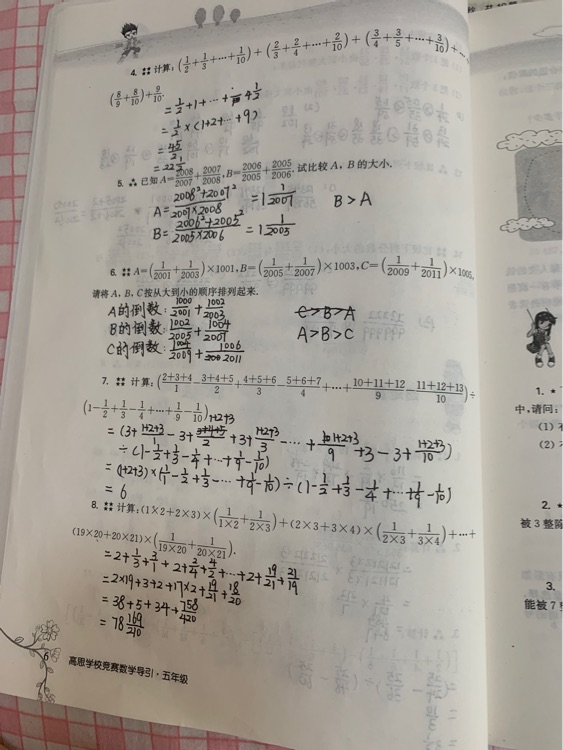 4. 计算: (1/2+1/3+⋯+1/10)+(2/3+2/4+⋯+2/10)+(3/4+3/5+⋯+3/10)+⋯+
(8/9+8/10)+9/10.
=1/2+1+⋯+4 1/2
=1/2×(1+2+⋯+9)
=45/2
=22 1/2
5. 已知A=2008/2007+2007/2008, B=2006/2005+2005/2006. 试比较A, B的大小.
A=2008²+2007²/2007×2008=1 1/2007 B>A
B=2006²+2005²/2005×2006=1 1/2005
6. A=(1/2001+1/2003)×1001, B=(1/2005+1/2007)×1003, C=(1/2009+1/2011)×1005,
请将A, B, C按从大到小的顺序排列起来.
A的倒数: 1000/2001+1002/2003 C>B>A
B的倒数: 1002/2005+1004/2007 A>B>C
C的倒数: 1004/2009+1006/2011
7. 计算: (2+3+4/1-3+4+5/2+4+5+6/3-5+6+7/4+⋯+10+11+12/9-11+12+13/10)÷
(1-1/2+1/3-1/4+⋯+1/9-1/10)
÷(1-1/2+1/3-1/4+⋯+1/9-1/10)
=(1+2+3)×(1/1-1/2+1/3-⋯+1/9-1/10)÷(1-1/2+1/3-1/4+⋯+1/9-1/10)
=6
8. 计算: (1×2+2×3)×(1/1×2+1/2×3)+(2×3+3×4)×(1/2×3+1/3×4)+⋯+
(19×20+20×21)×(1/19×20+1/20×21).
=2+1/3+3/1+2+2/4+4/2+⋯+2+19/21+21/19
=2×19+3+2+17×2+19/21+18/20
=38+5+34+758/420
=78 169/210
6
高思学校竞赛数学导引·五年级
1.
中,请问:
(1)
(2)
2.
被3整除
3.
能被7整